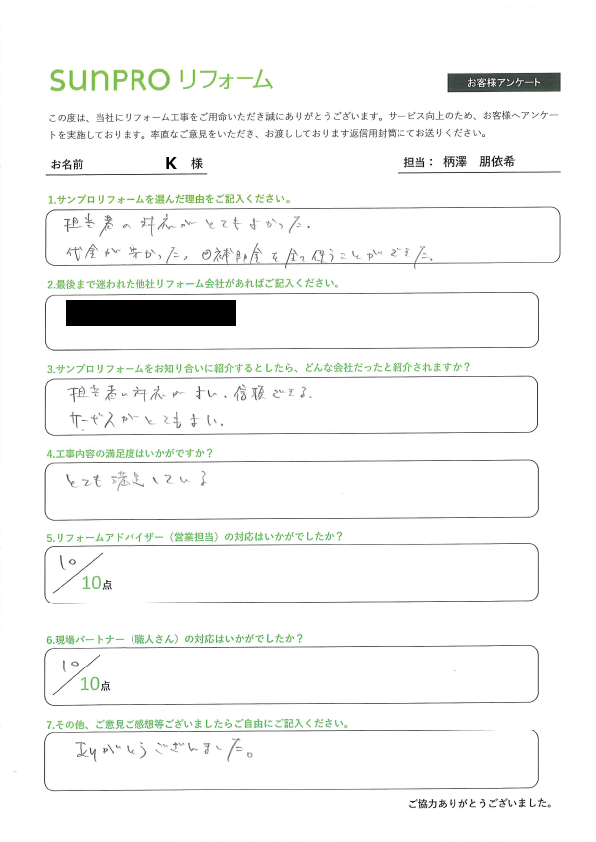 sunpro リフォーム
お客様アンケート
この度は、当社にリフォーム工事をご用命いただき誠にありがとうございます。サービス向上のため、お客様へアンケー
トを実施しております。率直なご意見をいただき、お渡ししております返信用封筒にてお送りください。
お名前 K 様
担当： 柄澤 朋依希
1.サンプロリフォームを選んだ理由をご記入ください。
担当者の対応がとてもよかった。
代金が安かった。補助金を全て使うことができた。
2.最後まで迷われた他社リフォーム会社があればご記入ください。
3.サンプロリフォームをお知り合いに紹介するとしたら、どんな会社だったと紹介されますか？
担当者の対応がよい。信頼できる。
サービスがとてもよい。
4.工事内容の満足度はいかがですか？
とても満足している
5.リフォームアドバイザー（営業担当）の対応はいかがでしたか？
10/10点
6.現場パートナー（職人さん）の対応はいかがでしたか？
10/10点
7.その他、ご意見ご感想等ございましたらご自由にご記入ください。
ありがとうございました。
ご協力ありがとうございました。